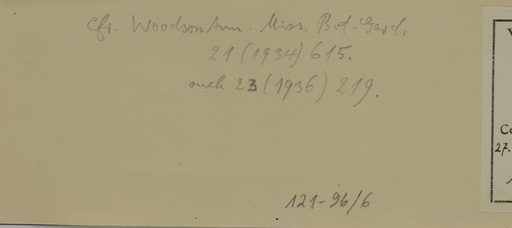 Cfr. Woodson Ann. Miss. Bot. Gard.
21 (1934) 615.
auch 23 (1936) 219.
121-96/6
27.